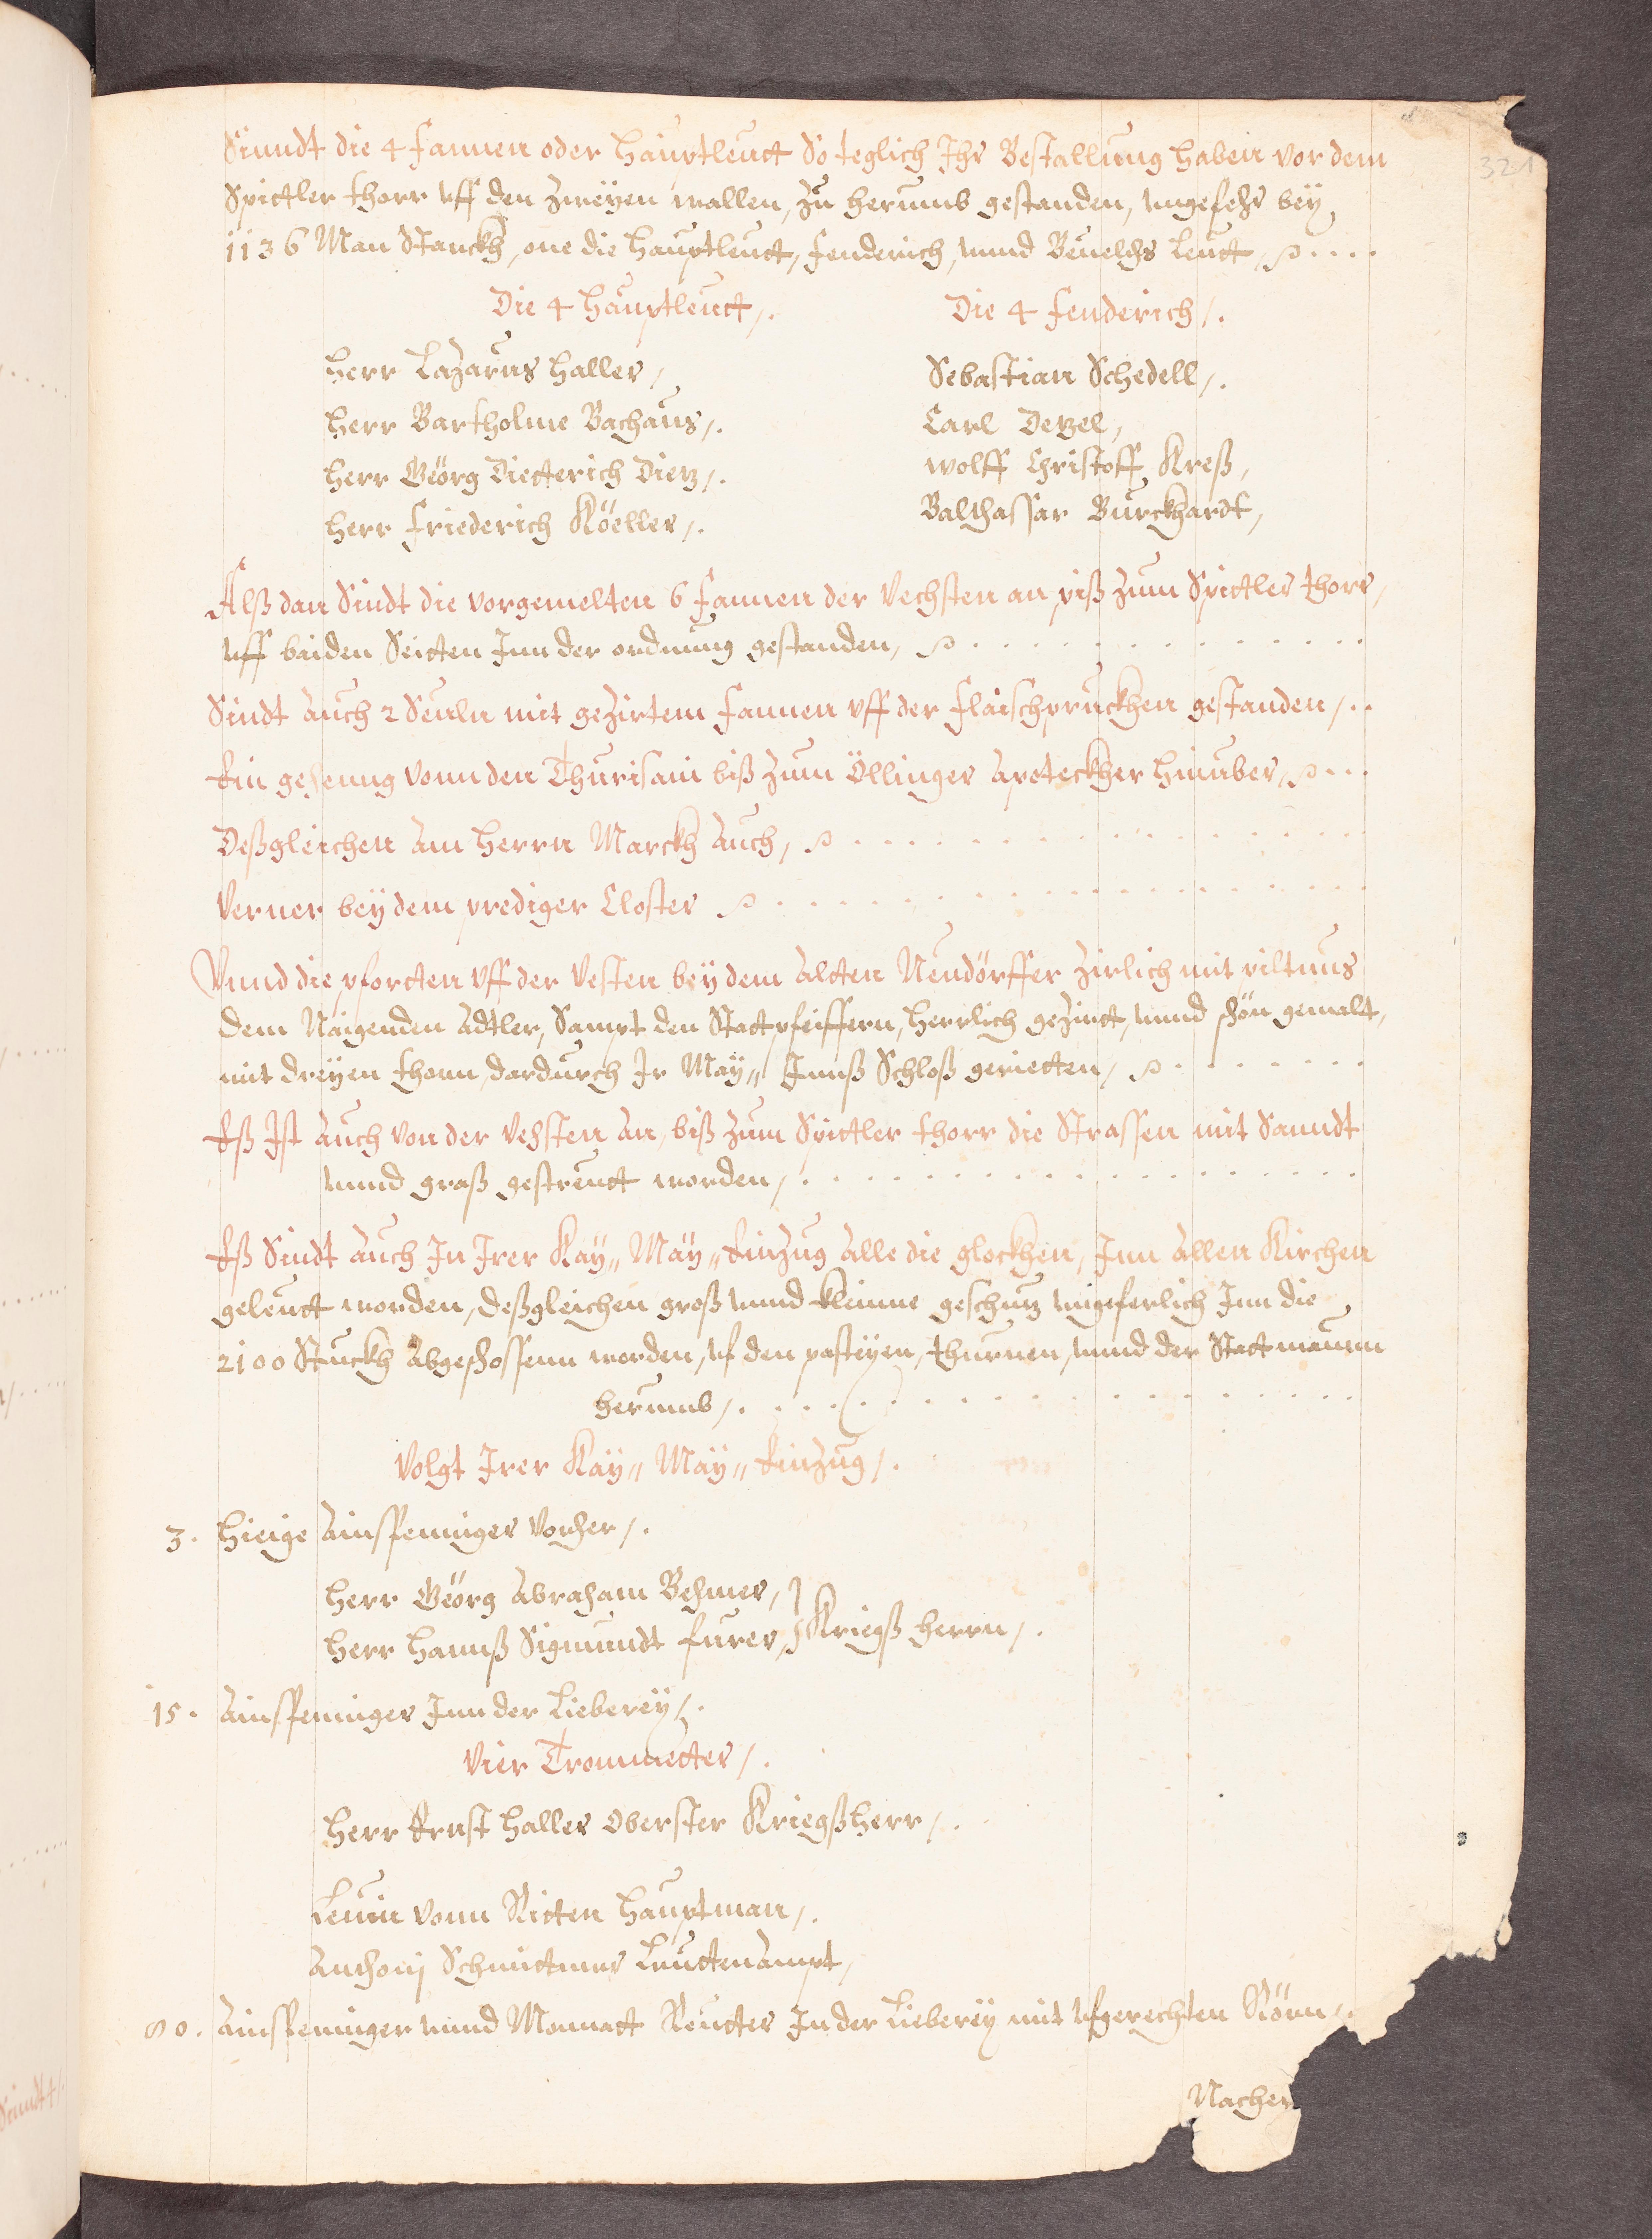 321
Sinndt die 4 fannen oder haüptleütt So teglich Ihr Bestallüng haben vor dem
Spittler thorr vff den zweÿen wallen, zü herumb gestanden, vngefehr beÿ
1136 Man Starckh, one die haüptleütt, fenderich, vnnd Beuelchs Leütt, ....
Die 4 haüptleütt /.
Die 4 fenderich /.
Herr Lazarus Haller /
Sebastian Schedell /.
Herr Bartholme Bachaüs /.
Carl Detzel,
Herr Geörg Dietterich Dietz /.
Wolff Christoff Kreß,
Herr Friederich Köeller /.
Balthassar Bürckhardt,
Alß dan Sindt die vorgemelten 6 fannen der Vechsten an, piß zum Spittler thorr,
vff baiden Seitten Inn der ordnüng gestanden,
Sindt Aüch 2 Seüln mit gezirtem fannen vff der flaischprückhen gestanden /..
Ein geheng vonn den Thürisani biß zum Öllinger Apoteckher hinüber,
Deßgleichen Am Herrn Marckh Aüch,
Verner beÿ dem prediger Closter
Vnnd die pfortten vff der Vesten beÿ dem Altten Neüdörffer zirlich mit piltnus
dem Naigenden Adtler, Sampt den Stattpfeiffern, herrlich gezirtt, vnnd schön gemalt,
mit dreÿen thorn, dardürch Ir Maÿ„ Innß Schloß geritten,
Eß Ist Aüch von der Vehsten An, biß zum Spittler thorr die Strassen mit Sanndt
vnnd graß gestreütt worden /.
Eß Sindt Aüch In Irer Kaÿ„ Maÿ„ Einzüg Alle die glockhen, Inn Allen Kirchen
geleütt worden, deßgleichen groß vnnd kleinne geschütz vngeferlich Inn die
2100 Stückh Abgeschossenn worden, vf den pasteÿen, thürnen, vnnd der Stattmaürn
herumb /.
Volgt Irer Kaÿ„ Maÿ„ Einzüg /.
3. Hieige Ainspenniger Vorher /.
Herr Geörg Abraham Behmer,
Herr Hannß Sigmündt fürer, Kriegß herrn /.
15. Ainspenniger Inn der Lieberey /.
Vier Trommetter /.
Herr Ernst Haller Oberster Kriegßherr /.
Leüin vonn Ritten Haüptman /.
Anthonj Schmittmer Leüttenampt,
80. Ainspenninger vnnd Monnatt Reütter In der Lieberey mit vfgerechten Rörn /.
Nacher